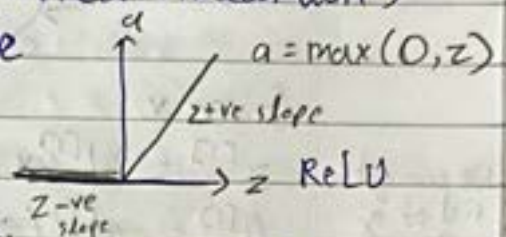 e
a
a = max(0,z)
z+ve slope
z ReLU
z-ve
slope